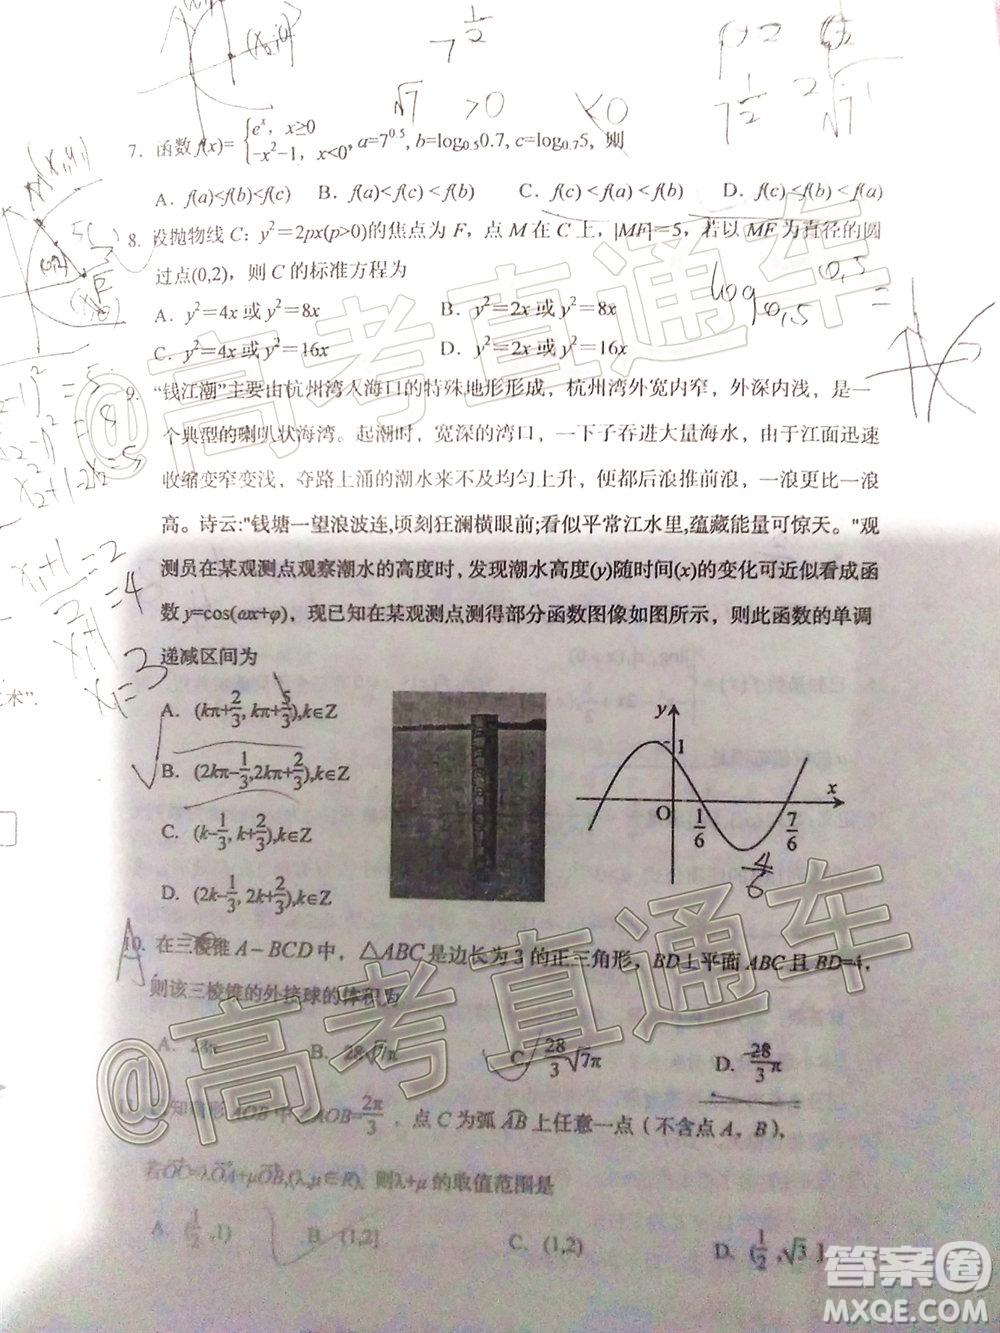 (x₂,0)
7^{1/2}
√7 >0 <0
7^{1/2} ²√7¹
7. 函数f(x)={e^x, x≥0; -x²-1, x<0, a=7^{0.5}, b=log_{0.5}0.7, c=log_{0.7}5, 则
A. f(a)<f(b)<f(c) B. f(a)<f(c)<f(b) C. f(c)<f(a)<f(b) D. f(c)<f(b)<f(a)
M(x₁,y₁)
8. 设抛物线 C: y²=2px(p>0)的焦点为 F, 点 M 在 C 上, |MF|=5, 若以 MF 为直径的圆
过点(0,2), 则 C 的标准方程为
log_{0.5} 0.5 =
A. y²=4x 或 y²=8x B. y²=2x 或 y²=8x
C. y²=4x 或 y²=16x D. y²=2x 或 y²=16x
9. “钱江潮”主要由杭州湾入海口的特殊地形形成, 杭州湾外宽内窄, 外深内浅, 是一
个典型的喇叭状海湾。起潮时, 宽深的湾口, 一下子吞进大量海水, 由于江面迅速
收缩变窄变浅, 夺路上涌的潮水来不及均匀上升, 便都后浪推前浪, 一浪更比一浪
高。诗云:"钱塘一望浪波连,顷刻狂澜横眼前;看似平常江水里,蕴藏能量可惊天。"观
测员在某观测点观察潮水的高度时, 发现潮水高度(y)随时间(x)的变化可近似看成函
数 y=cos(ωx+φ), 现已知在某观测点测得部分函数图像如图所示, 则此函数的单调
递减区间为
x₁+1
=2
=4
x=3
术".
A. (kπ+2/3, kπ+5/3),k∈Z
B. (2kπ-1/3,2kπ+2/3),k∈Z
C. (k-1/3, k+2/3),k∈Z
D. (2k-1/3, 2k+2/3),k∈Z
y
1
O
1/6
7/6
x
4/6
10. 在三棱锥 A-BCD 中, △ABC 是边长为 3 的正三角形, BD⊥平面 ABC 且 BD=4,
则该三棱锥的外接球的体积为
A. 28π B. 28√7π C. 28/3√7π D. 28/3π
知扇形 AOB 中 ∠AOB=2π/3, 点 C 为弧 AB 上任意一点(不含点 A, B),
若OC=λOA+μOB,(λ,μ∈R), 则λ+μ 的取值范围是
A. (1/2,1) B. (1,2] C. (1,2) D. (1/2,√3]
@高考直通车
@高考直通车
答案圈
MXQE.COM